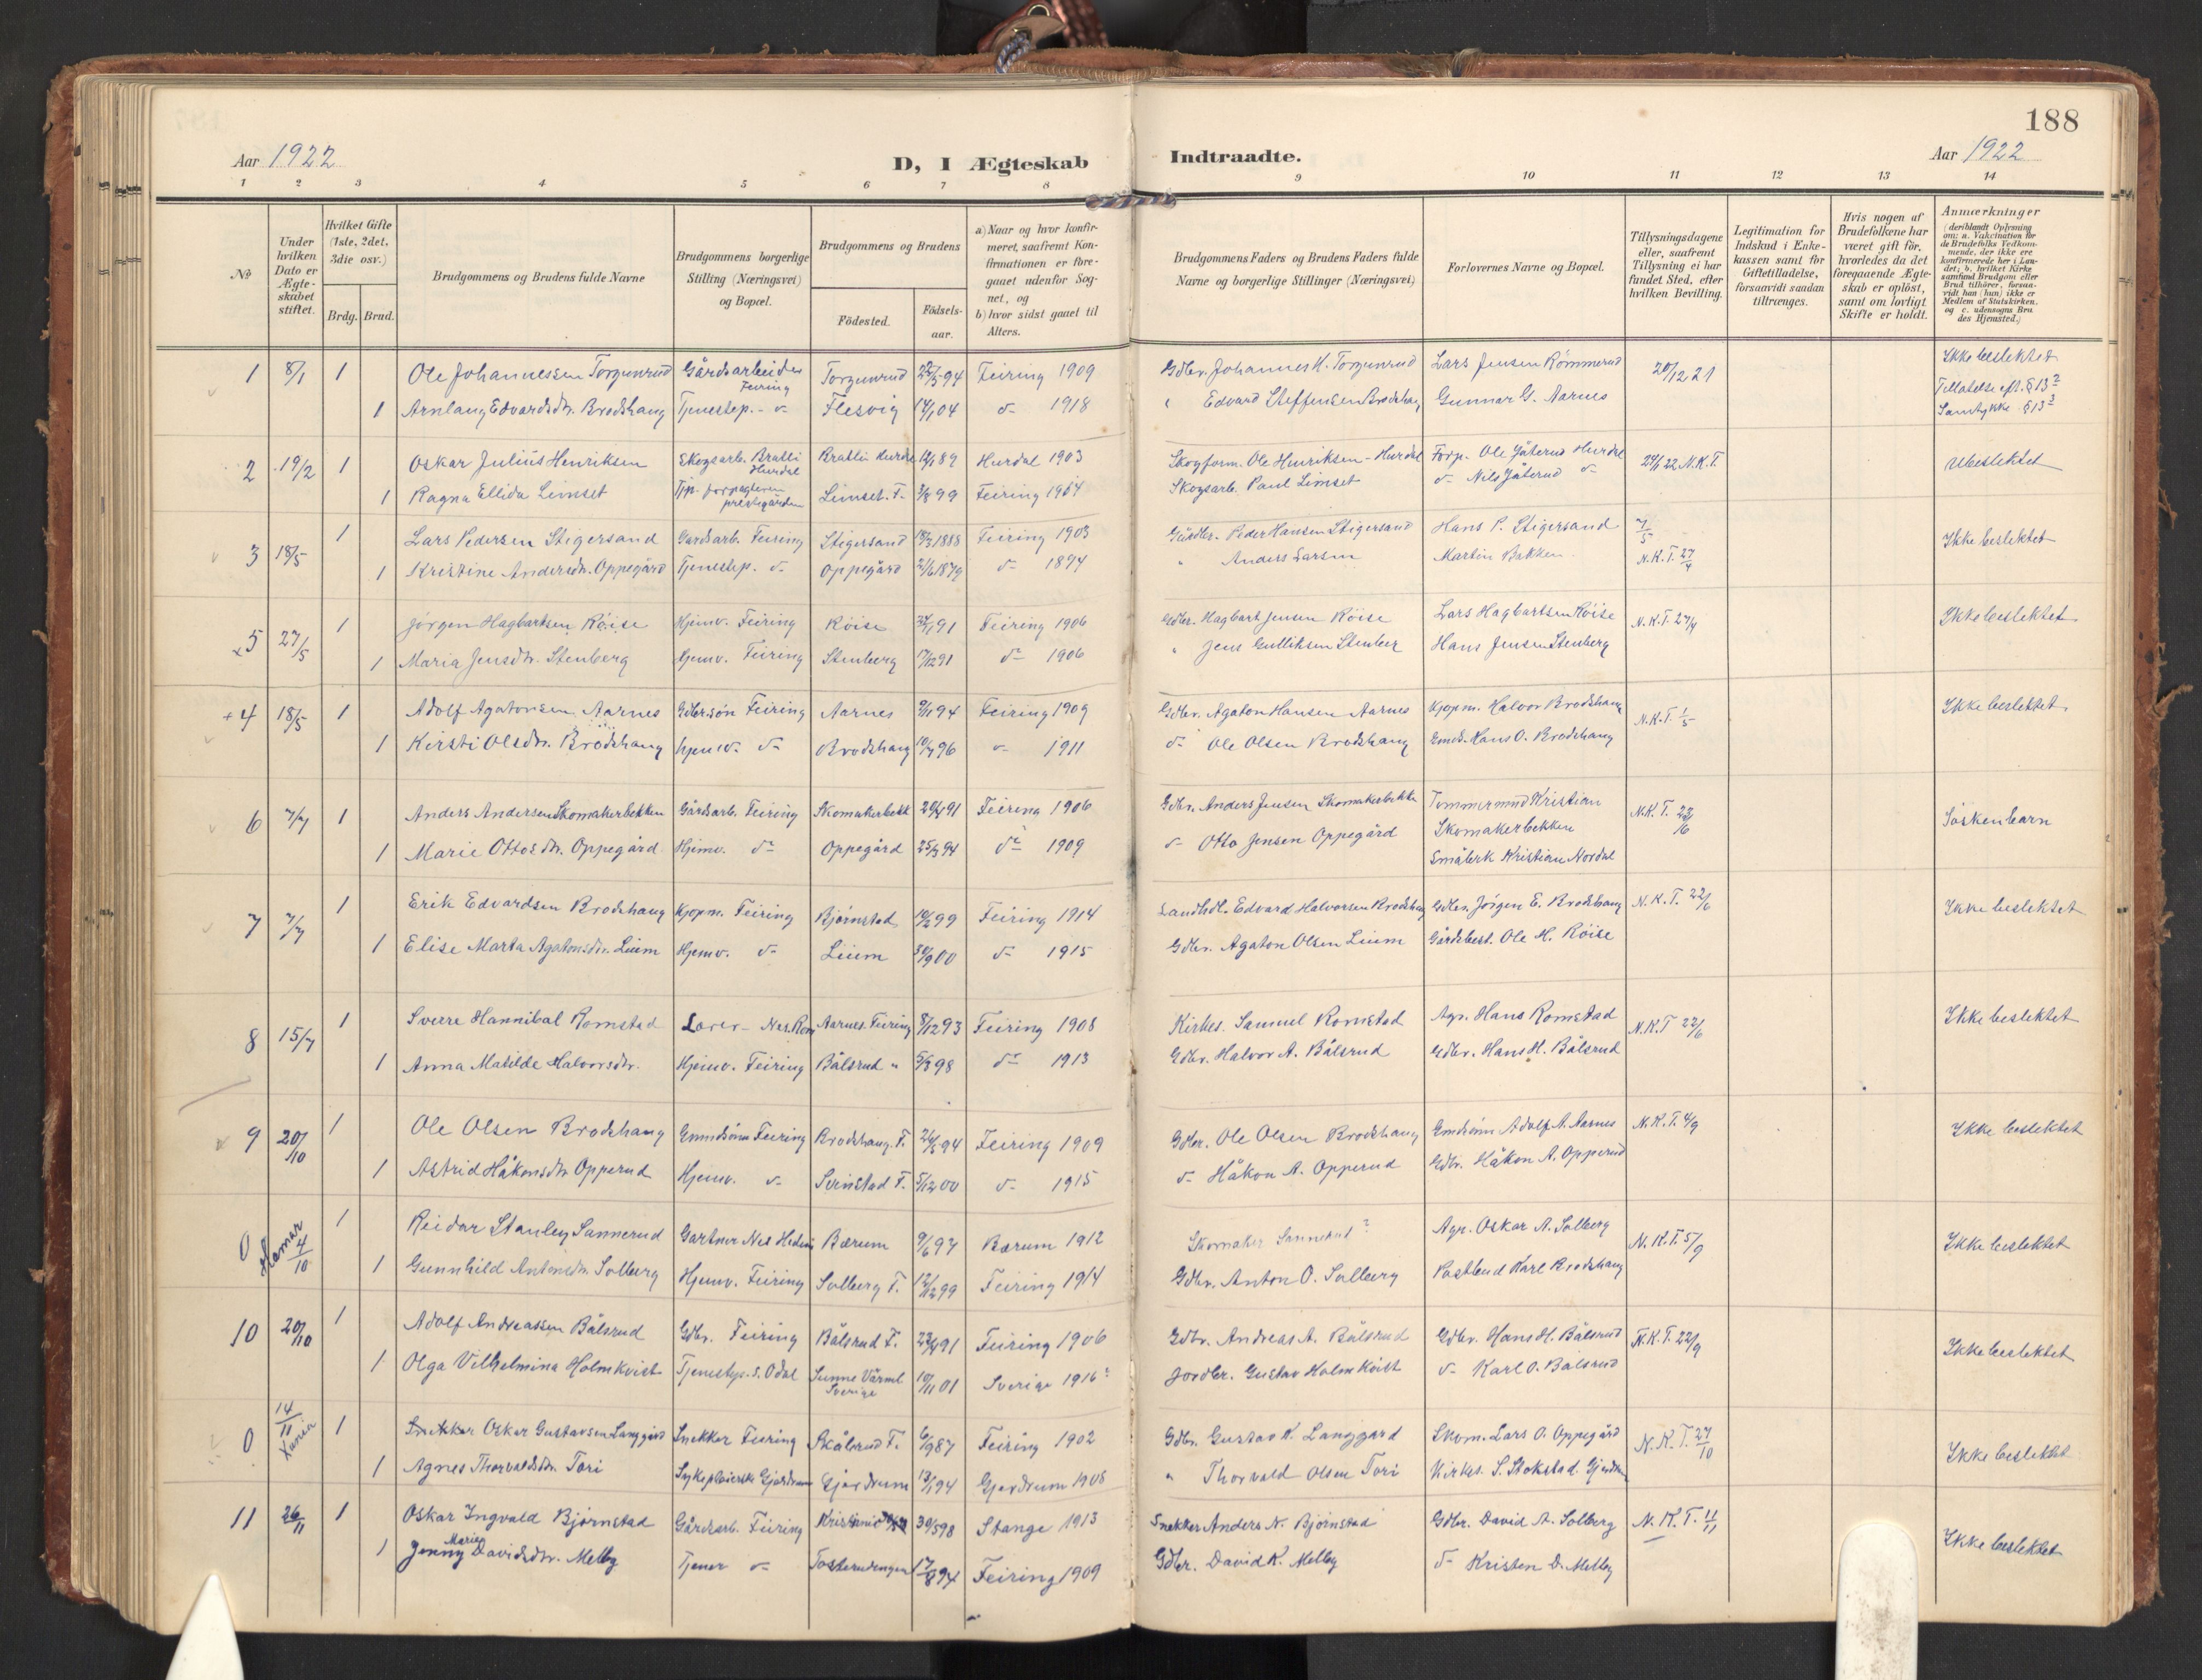 188
Aar 1922
D, I Ægteskab Indtraadte.
Aar 1922
1 2 3 4 5 6 7 8 9 10 11 12 13 14
No
Under hvilken Dato er Ægteskabet stiftet.
Hvilket Gifte (1ste, 2det, 3die osv.)
Brdg. Brud.
Brudgommens og Brudens fulde Navne
Brudgommens borgerlige Stilling (Næringsvei) og Bopæl.
Brudgommens og Brudens
Födested.
Födselsaar.
a) Naar og hvor konfirmeret, saafremt Konfirmationen er foregaaet udenfor Sognet, og
b) hvor sidst gaaet til Alters.
Brudgommens Faders og Brudens Faders fulde Navne og borgerlige Stillinger (Næringsvei)
Forlovernes Navne og Bopæl.
Tillysningsdagene eller, saafremt Tillysning ei har fundet Sted, efter hvilken Bevilling.
Legitimation for Indskud i Enkekassen samt for Giftetilladelse, forsaavidt saadan tiltrænges.
Hvis nogen af Brudefolkene har været gift før, hvorledes da det foregaaende Ægteskab er oplöst, samt om lovligt Skifte er holdt.
Anmærkninger (deriblandt Oplysning om: a. Vakcination for de Brudefolks Vedkommende, der ikke ere konfirmerede her i Landet; b. hvilket Kirkesamfund Brudgom eller Brud tilhörer, forsaavidt han (hun) ikke er Medlem af Statskirken. og c. udensogns Brudes Hjemsted.)
1 8/1 1 Ole Johannessen Torgunrud Gårdsarbeider Feiring Torgunrud 22/5 94 Feiring 1909 Gdbr. Johannes H. Torgunrud Lars Jensen Römmerud 20/12 21 Ikke beslektet
1 Arnlaug Edvardsdtr. Brodshaug Tjenestep. - d- Flesvig 14/1 04 d- 1918 " Edvard Steffensen Brodshaug Gunnar G. Aarnes Tillatelse eft. § 13 2
Samtykke § 13 3
2 19/2 1 Oskar Julius Henriksen Skogsarb. Bratli Hurdal Bratli Hurdal Hurdal 1903 Skogform. Ole Henriksen - Hurdal Forp. Ole Gåterud Hurdal 24/1 22 N.K.T. Ubeslektet
1 Ragna Ellida Limset Tjp. forpagteren prestegården Limset. F. 3/8 99 Feiring 1914 Skogsarb. Paul Limset d- Nils Gåterud d-
3 18/5 1 Lars Pedersen Stigersand Gardsarb. Feiring Stigersand 18/3 1888 Feiring 1903 Gårdbr. Peder Hansen Stigersand Hans P. Stigersand 7/5 Ikke beslektet
1 Kristine Andersdtr. Oppegård Tjenestep. d- Oppegård 21/6 1879 d- 1894 " Anders Larsen Martin Bakken N.K.T. 27/4
5 27/5 1 Jörgen Hagbartsen Röise Hjemv. Feiring Röise Feiring 1906 Gdbr. Hagbart Jensen Röise Lars Hagbartsen Röise N.K.T. 27/4 Ikke beslektet
1 Maria Jensdtr. Stenberg Hjemv. Feiring Stenberg 17/12 91 d- 1906 " Jens Gulliksen Stenber Hans Jensen Stenberg
+ 4 18/5 1 Adolf Agatonsen Aarnes Gdbr.sön Feiring Aarnes 9/1 94 Feiring 1909 Gdbr. Agaton Hansen Aarnes Kjøpm. Halvor Brodshaug N.K.T. 1/5 Ikke beslektet
1 Kirsti Olsdtr. Brodshaug hjemv. d- Brodshaug 10/7 96 d- 1911 d- Ole Olsen Brodshaug Gmds. Hans O. Brodshaug
6 7/7 1 Anders Andersen Skomakerbekken Gårdsarb. Feiring Skomakerbekk 20/4 91 Feiring 1906 Gdbr. Anders Jensen Skomakerbekke Tømmermnd Kristian Skomakerbekken N.K.T. 22/6 Söskenbarn
1 Marie Ottosdtr. Oppegård Hjemv. d- Oppegård 25/3 94 d- 1909 d- Otto Jensen Oppegård Småbrk Kristian Nordal
7 7/7 1 Erik Edvardsen Brodshaug Kjøpm. Feiring Bjørnstad 10/2 99 Feiring 1914 Landhdl. Edvard Halvorsen Brodshaug Gdbr. Jörgen E. Brodshaug N.K.T. 22/6 Ikke beslektet
1 Elise Marta Agatonsdtr. Lium Hjemv. d- Lium 30/9 00 d- 1915 Gdbr. Agaton Olsen Lium Gårdbest. Ole H. Röise
8 15/7 1 Sverre Hannibal Romstad Lærer - Nes. Rom Aarnes. Feiring 8/12 93 Feiring 1908 Kirkes. Samuel Romstad Agr. Hans Romstad N.K.T 22/6 Ikke beslektet
1 Anna Matilde Halvorsdtr. Hjemv. Feiring Bålsrud " 5/8 98 d- 1913 Gdbr. Halvor A. Bålsrud Gdbr. Hans H. Bålsrud
9 20/10 1 Ole Olsen Brodshaug Feiring Brodshaug. F. 26/5 94 Feiring 1909 Gdbr. Ole Olsen Brodshaug Adolf A. Aarnes N.K.T. 4/9 Ikke beslektet
1 Astrid Håkonsdtr Opperud Hjemv. d- F. 5/12 00 d- 1915 d- Håkon A. Opperud Gdbr. Håkon A. Opperud
0 Hamar 4/10 1 Reidar Stanley Sannerud Gartner Nes Hedm Bærum 9/6 97 Bærum 1912 Skomaker Sannerud? Agr. Oskar A. Solberg N.K.T. 5/9 Ikke beslektet
1 Gunnhild Antonsdtr. Solberg Hjemv. Feiring Solberg F. 12/12 99 Feiring 1914 Gdbr. Anton O. Solberg Postbud Karl Brodshaug
10 20/10 1 Adolf Andreassen Bålsrud Gdbr. Feiring Bålsrud F. 23/4 91 Feiring 1906 Gdbr. Andreas A. Bålsrud Gdbr. Hans H. Bålsrud N.K.T. 22/9 Ikke beslektet
1 Olga Vilhelmina Holmkvist Tjenestep. S. Odal Sunne Värml. Sverige 10/11 01 Sverige 1916? Jordbr. Gustav Holmkvist d- Karl O. Bålsrud
0 14/11 Xania 1 Snekker Oskar Gustavsen Langgård Snekker Feiring Skålsrud F. 6/9 87 Feiring 1902 Gdbr. Gustav K. Langgard Skom. Lars O. Oppegård N.K.T. 27/10 Ikke beslektet
1 Agnes Thorvaldsdtr. Tori Sykepleierske Gjerdrum Gjerdrum 13/1 94 Gjerdrum 1908 " Thorvald Olsen Tori Kirkes. S. Stokstad. Gjerdrum
11 26/11 1 Oskar Ingvald Bjørnstad Gårdsarb. Feiring Kristiania 30/5 98 Stange 1913 Snekker Anders N. Bjørnstad Gdbr. David A. Solberg N.K.T. 11/11 Ikke beslektet
1 Jenny Marie Davidsdtr. Melby Tjener d- Tosterudengen 17/8 94 Feiring 1909 Gdbr. David K. Melby d- Kristen D. Melby